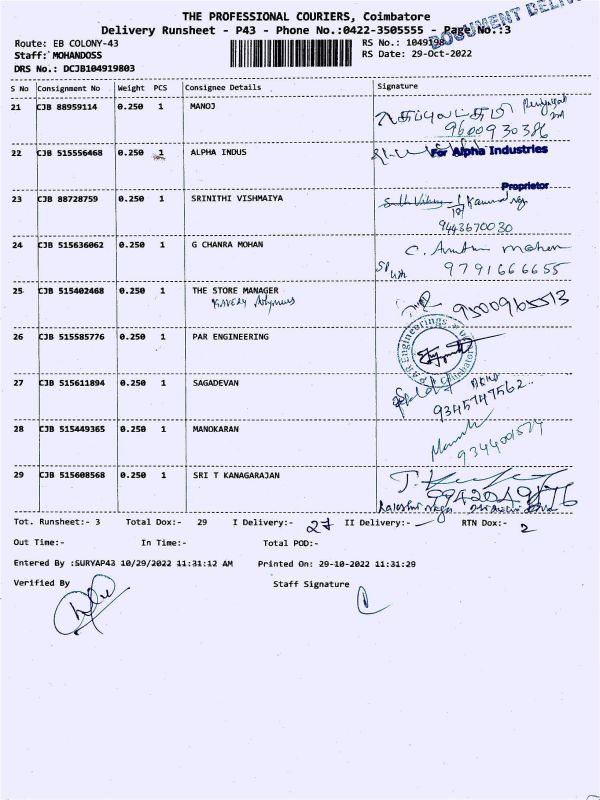 THE PROFESSIONAL COURIERS, Coimbatore
Delivery Runsheet - P43 - Phone No.:0422-3505555 - Page No.:3
DOCUMENT
Route: EB COLONY-43 RS No.:
Staff: MOHANDOSS RS Date: 29-Oct-2022
DRS No.: DCJB104919803
S No Consignment No Weight PCS Consignee Details Signature
21 CJB 88959114 0.250 1 MANOJ
9600930386
22 CJB 515556468 0.250 1 ALPHA INDUS For Alpha Industries
Proprietor
23 CJB 88728759 0.250 1 SRINITHI VISHMAIYA
9443670030
24 CJB 515636062 0.250 1 G CHANRA MOHAN
9791666655
25 CJB 515402468 0.250 1 THE STORE MANAGER
26 CJB 515585776 0.250 1 PAR ENGINEERING
27 CJB 515611894 0.250 1 SAGADEVAN
9345747562
28 CJB 515449365 0.250 1 MANOKARAN
29 CJB 515608568 0.250 1 SRI T KANAGARAJAN
Tot. Runsheet:- 3 Total Dox:- 29 I Delivery:- 27 II Delivery:- — RTN Dox:- 2
Out Time:- In Time:- Total POD:-
Entered By :SURYAP43 10/29/2022 11:31:12 AM Printed On: 29-10-2022 11:31:29
Verified By Staff Signature